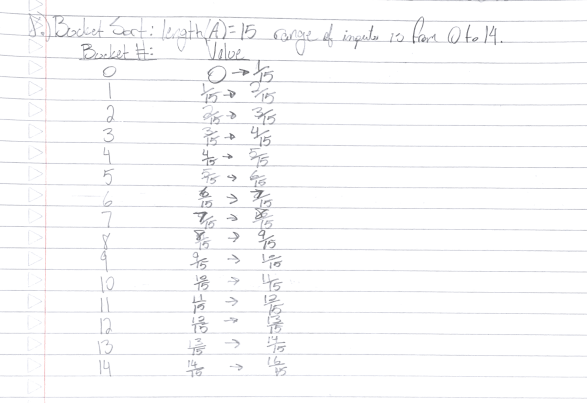 8.) Bucket Sort: length(A)=15 range of inputs is from 0 to 14.
Bucket #: Value
0 0 → 1/15
1 1/15 → 2/15
2 2/15 → 3/15
3 3/15 → 4/15
4 4/15 → 5/15
5 5/15 → 6/15
6 6/15 → 7/15
7 7/15 → 8/15
8 8/15 → 9/15
9 9/15 → 10/15
10 10/15 → 11/15
11 11/15 → 12/15
12 12/15 → 13/15
13 13/15 → 14/15
14 14/15 → 15/15